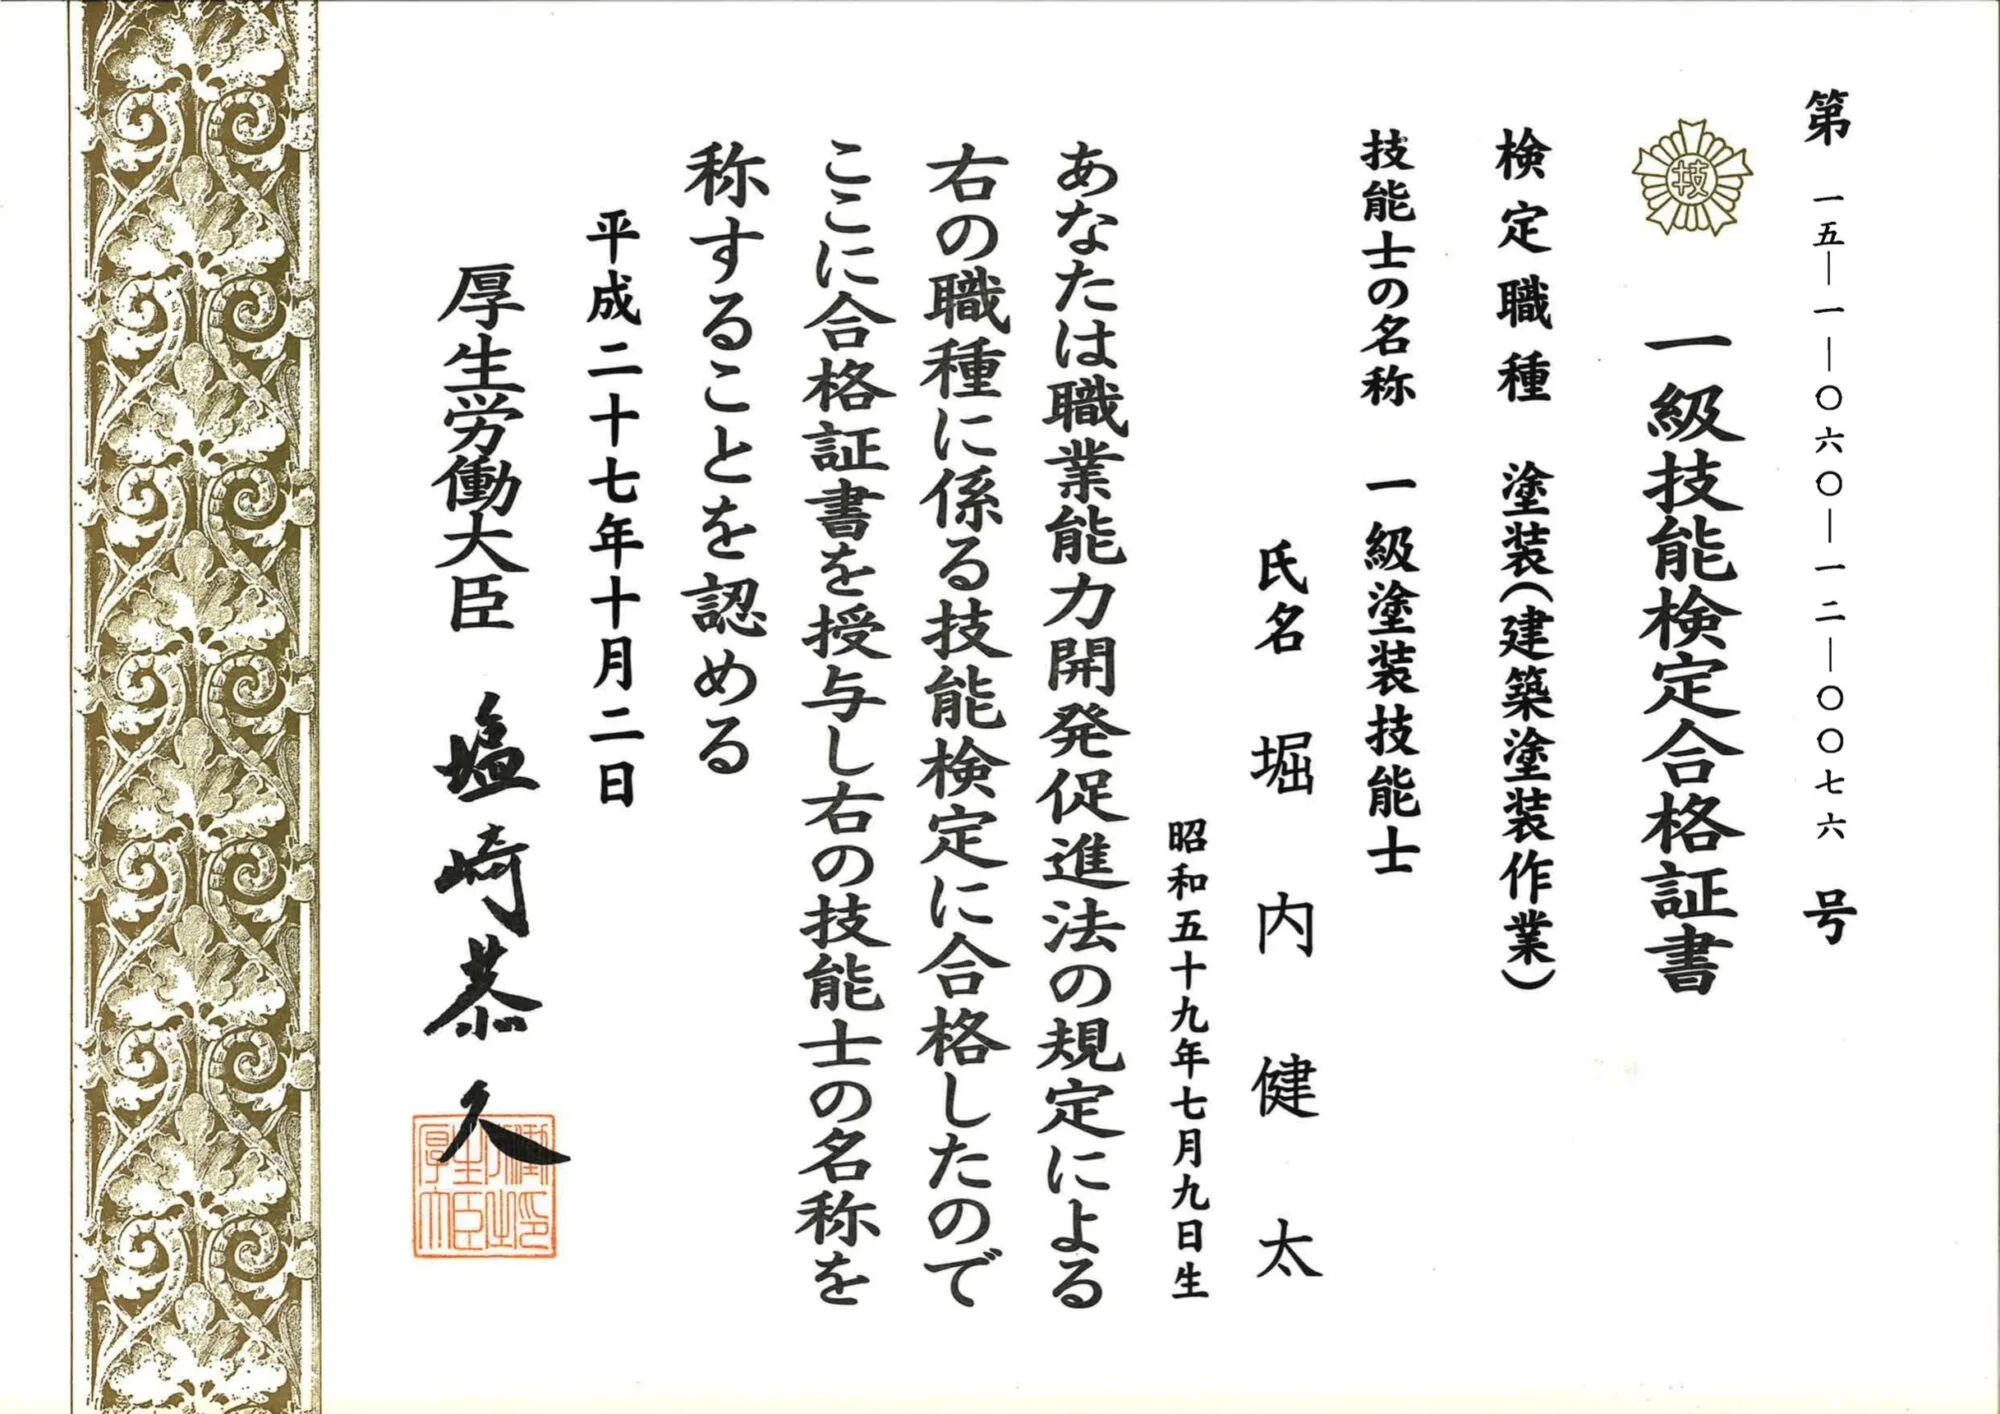 第 一五―一―〇六〇―一二―〇〇七六 号
技
一級技能検定合格証書
検定職種 塗装(建築塗装作業)
技能士の名称 一級塗装技能士
氏名 堀内健太
昭和五十九年七月九日生
あなたは職業能力開発促進法の規定による
右の職種に係る技能検定に合格したので
ここに合格証書を授与し右の技能士の名称を
称することを認める
平成二十七年十月二日
厚生労働大臣 塩崎恭久
厚生労働大臣之印